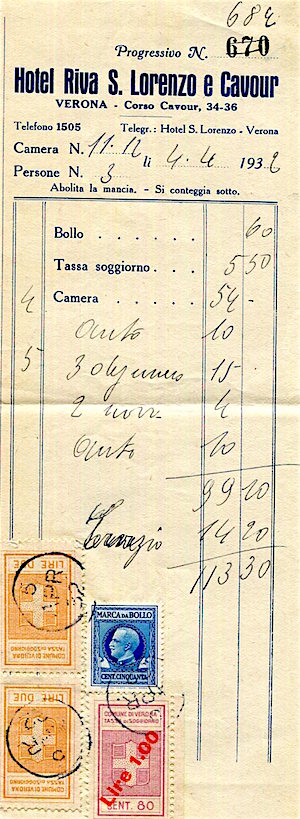 684
Progressivo N. 670
Hotel Riva S. Lorenzo e Cavour
VERONA - Corso Cavour, 34-36
Telefono 1505 Telegr.: Hotel S. Lorenzo - Verona
Camera N. 11.12 li 4.4 1932
Persone N. 3
Abolita la mancia. - Si conteggia sotto.
Bollo . . . . . . 60
Tassa soggiorno . . . 5 50
4 Camera . . . . . 54 -
auto 10
5 3 dejeuners 15 -
2 4
auto 10
99 10
Servizio 14 20
113 30
LIRE DUE
COMUNE DI VERONA
TASSA DI SOGGIORNO
5 APR
MARCA DA BOLLO
CENT. CINQUANTA
LIRE DUE
COMUNE DI VERONA
TASSA DI SOGGIORNO
APR
COMUNE DI VERONA
TASSA DI SOGGIORNO
Lire 1.00
CENT. 80